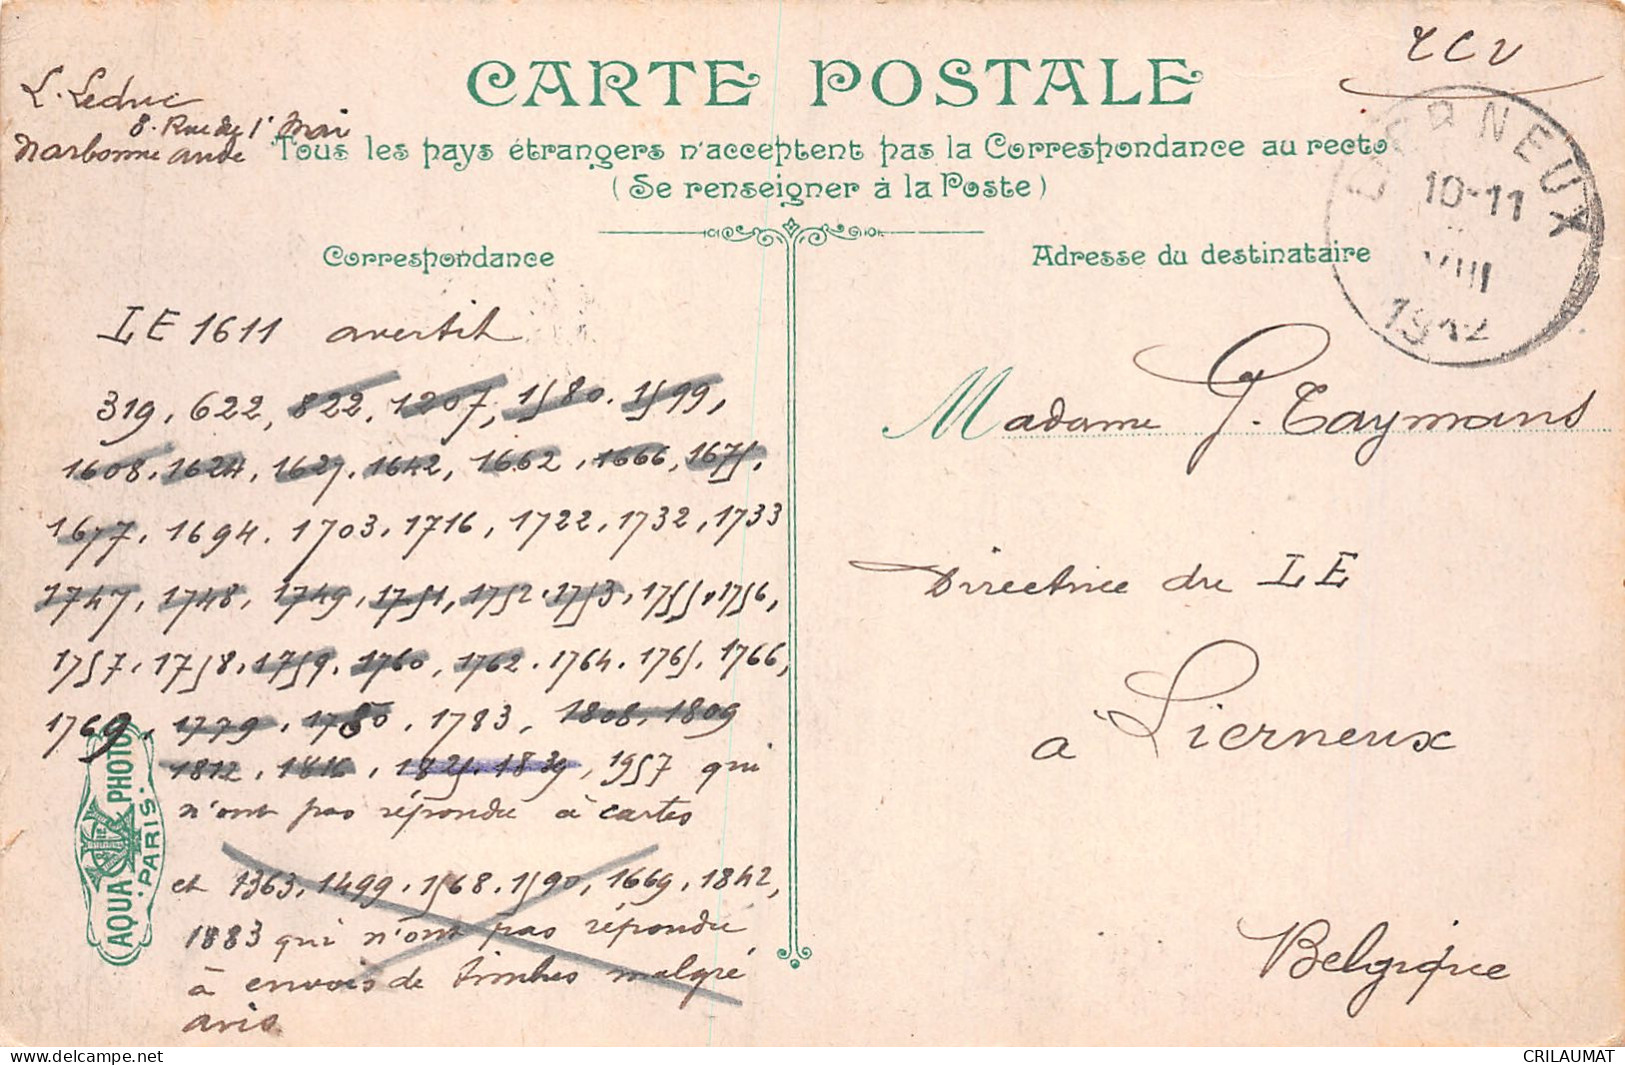 L. Leduc
8. Rue du 1r Mai
Narbonne Aude
TCV
CARTE POSTALE
Tous les pays étrangers n'acceptent pas la Correspondance au recto
(Se renseigner à la Poste)
LIERNEUX
10-11
VIII
1912
Correspondance
Adresse du destinataire
IE 1611 avertit
319, 622, 822, 1207, 1580. 1599,
1608, 1624, 1627, 1642, 1662, 1666, 1675,
1677, 1694, 1703, 1716, 1722, 1732, 1733
1747, 1748, 1749, 1751, 1752, 1753, 1755, 1756,
1757, 1758, 1759, 1760, 1762, 1764, 1765, 1766,
1769, 1779, 1780, 1783, 1808, 1809
1812, 1816, 1825, 1839, 1957 qui
n'ont pas répondu à cartes
et 1363, 1499, 1568, 1590, 1669, 1842,
1883 qui n'ont pas répondu
à envois de timbres malgré
avis
Madame J. Taymans
Directrice du IE
a Lierneux
Belgique
AQUA PHOTO
PARIS
CRILAUMAT